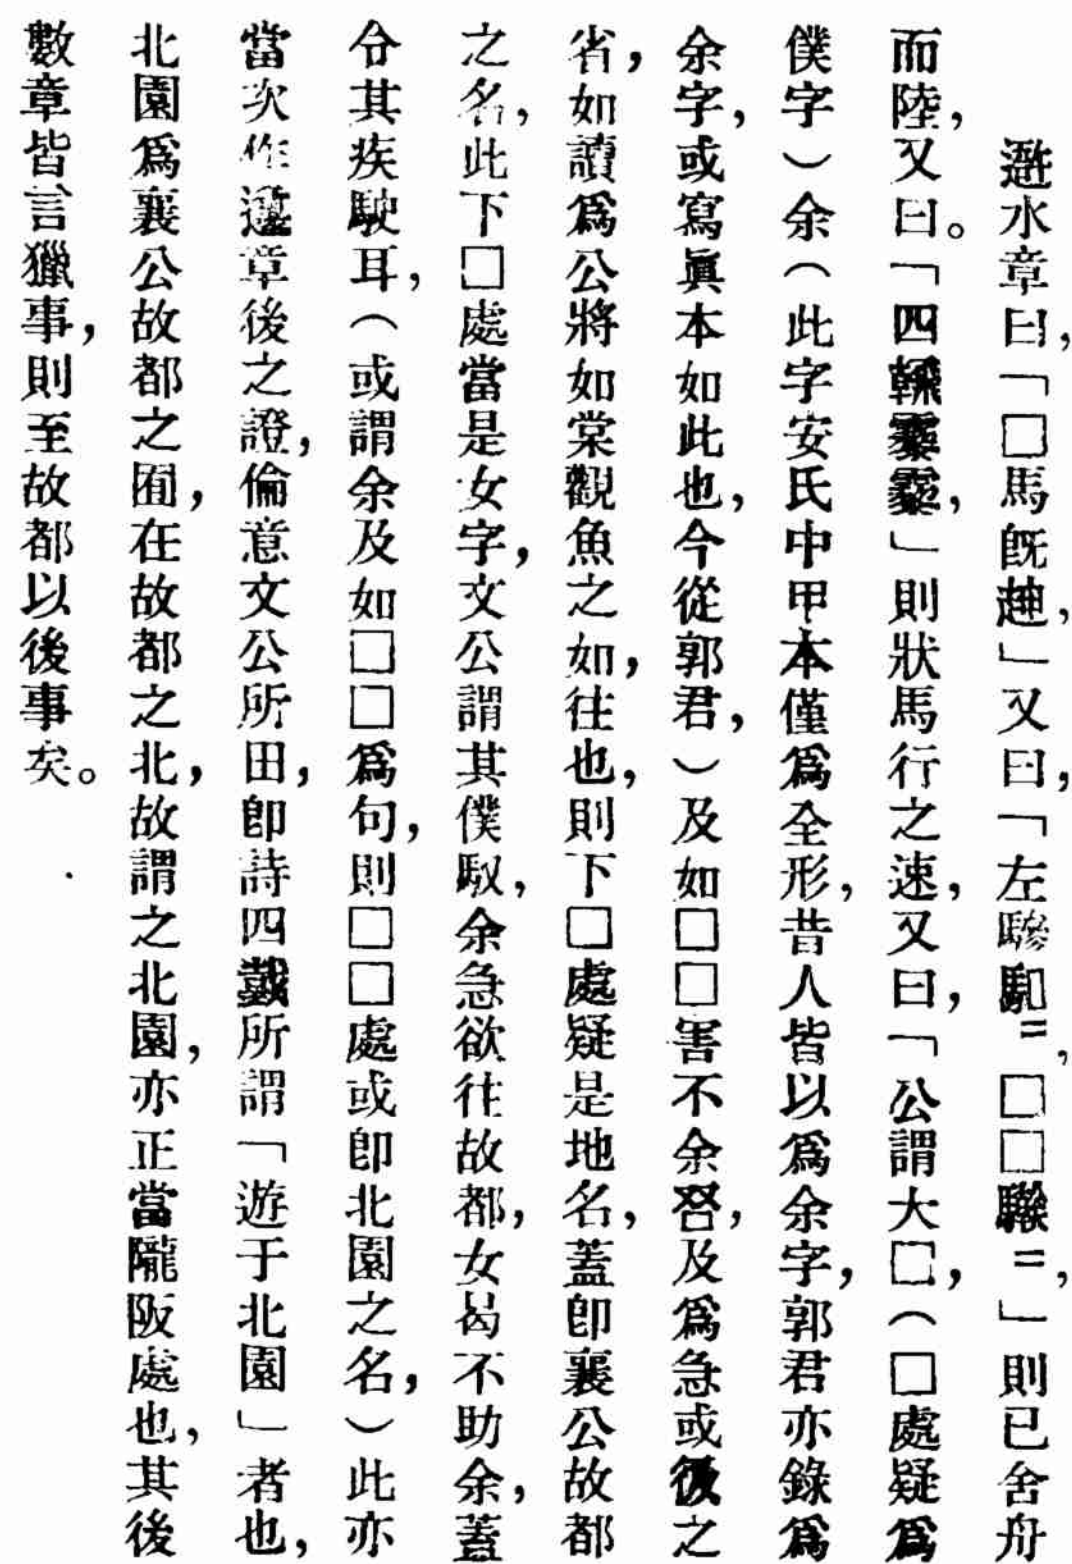 水章曰，「□馬旣，」又曰，「左驂=，□□=，」則已舍舟
而陸，又曰。「四，」則狀馬行之速，又曰，「公謂大□，（□處疑爲
僕字）余（此字安氏中甲本僅爲全形，昔人皆以爲余字，郭君亦錄爲
余字，或寫眞本如此也，今從郭君，）及如□□害不余，及爲急或之
省，如讀爲公將如棠觀魚之如，往也，則下□處疑是地名，蓋卽襄公故都
之名，此下□處當是女字，文公謂其僕馭，余急欲往故都，女曷不助余，蓋
令其疾駛耳，（或謂余及如□□爲句，則□□處或卽北園之名，）此亦
當次作邍章後之證，倫意文公所田，卽詩四所謂「遊于北園」者也，
北園爲襄公故都之囿，在故都之北，故謂之北園，亦正當隴阪處也，其後
數章皆言獵事，則至故都以後事矣。